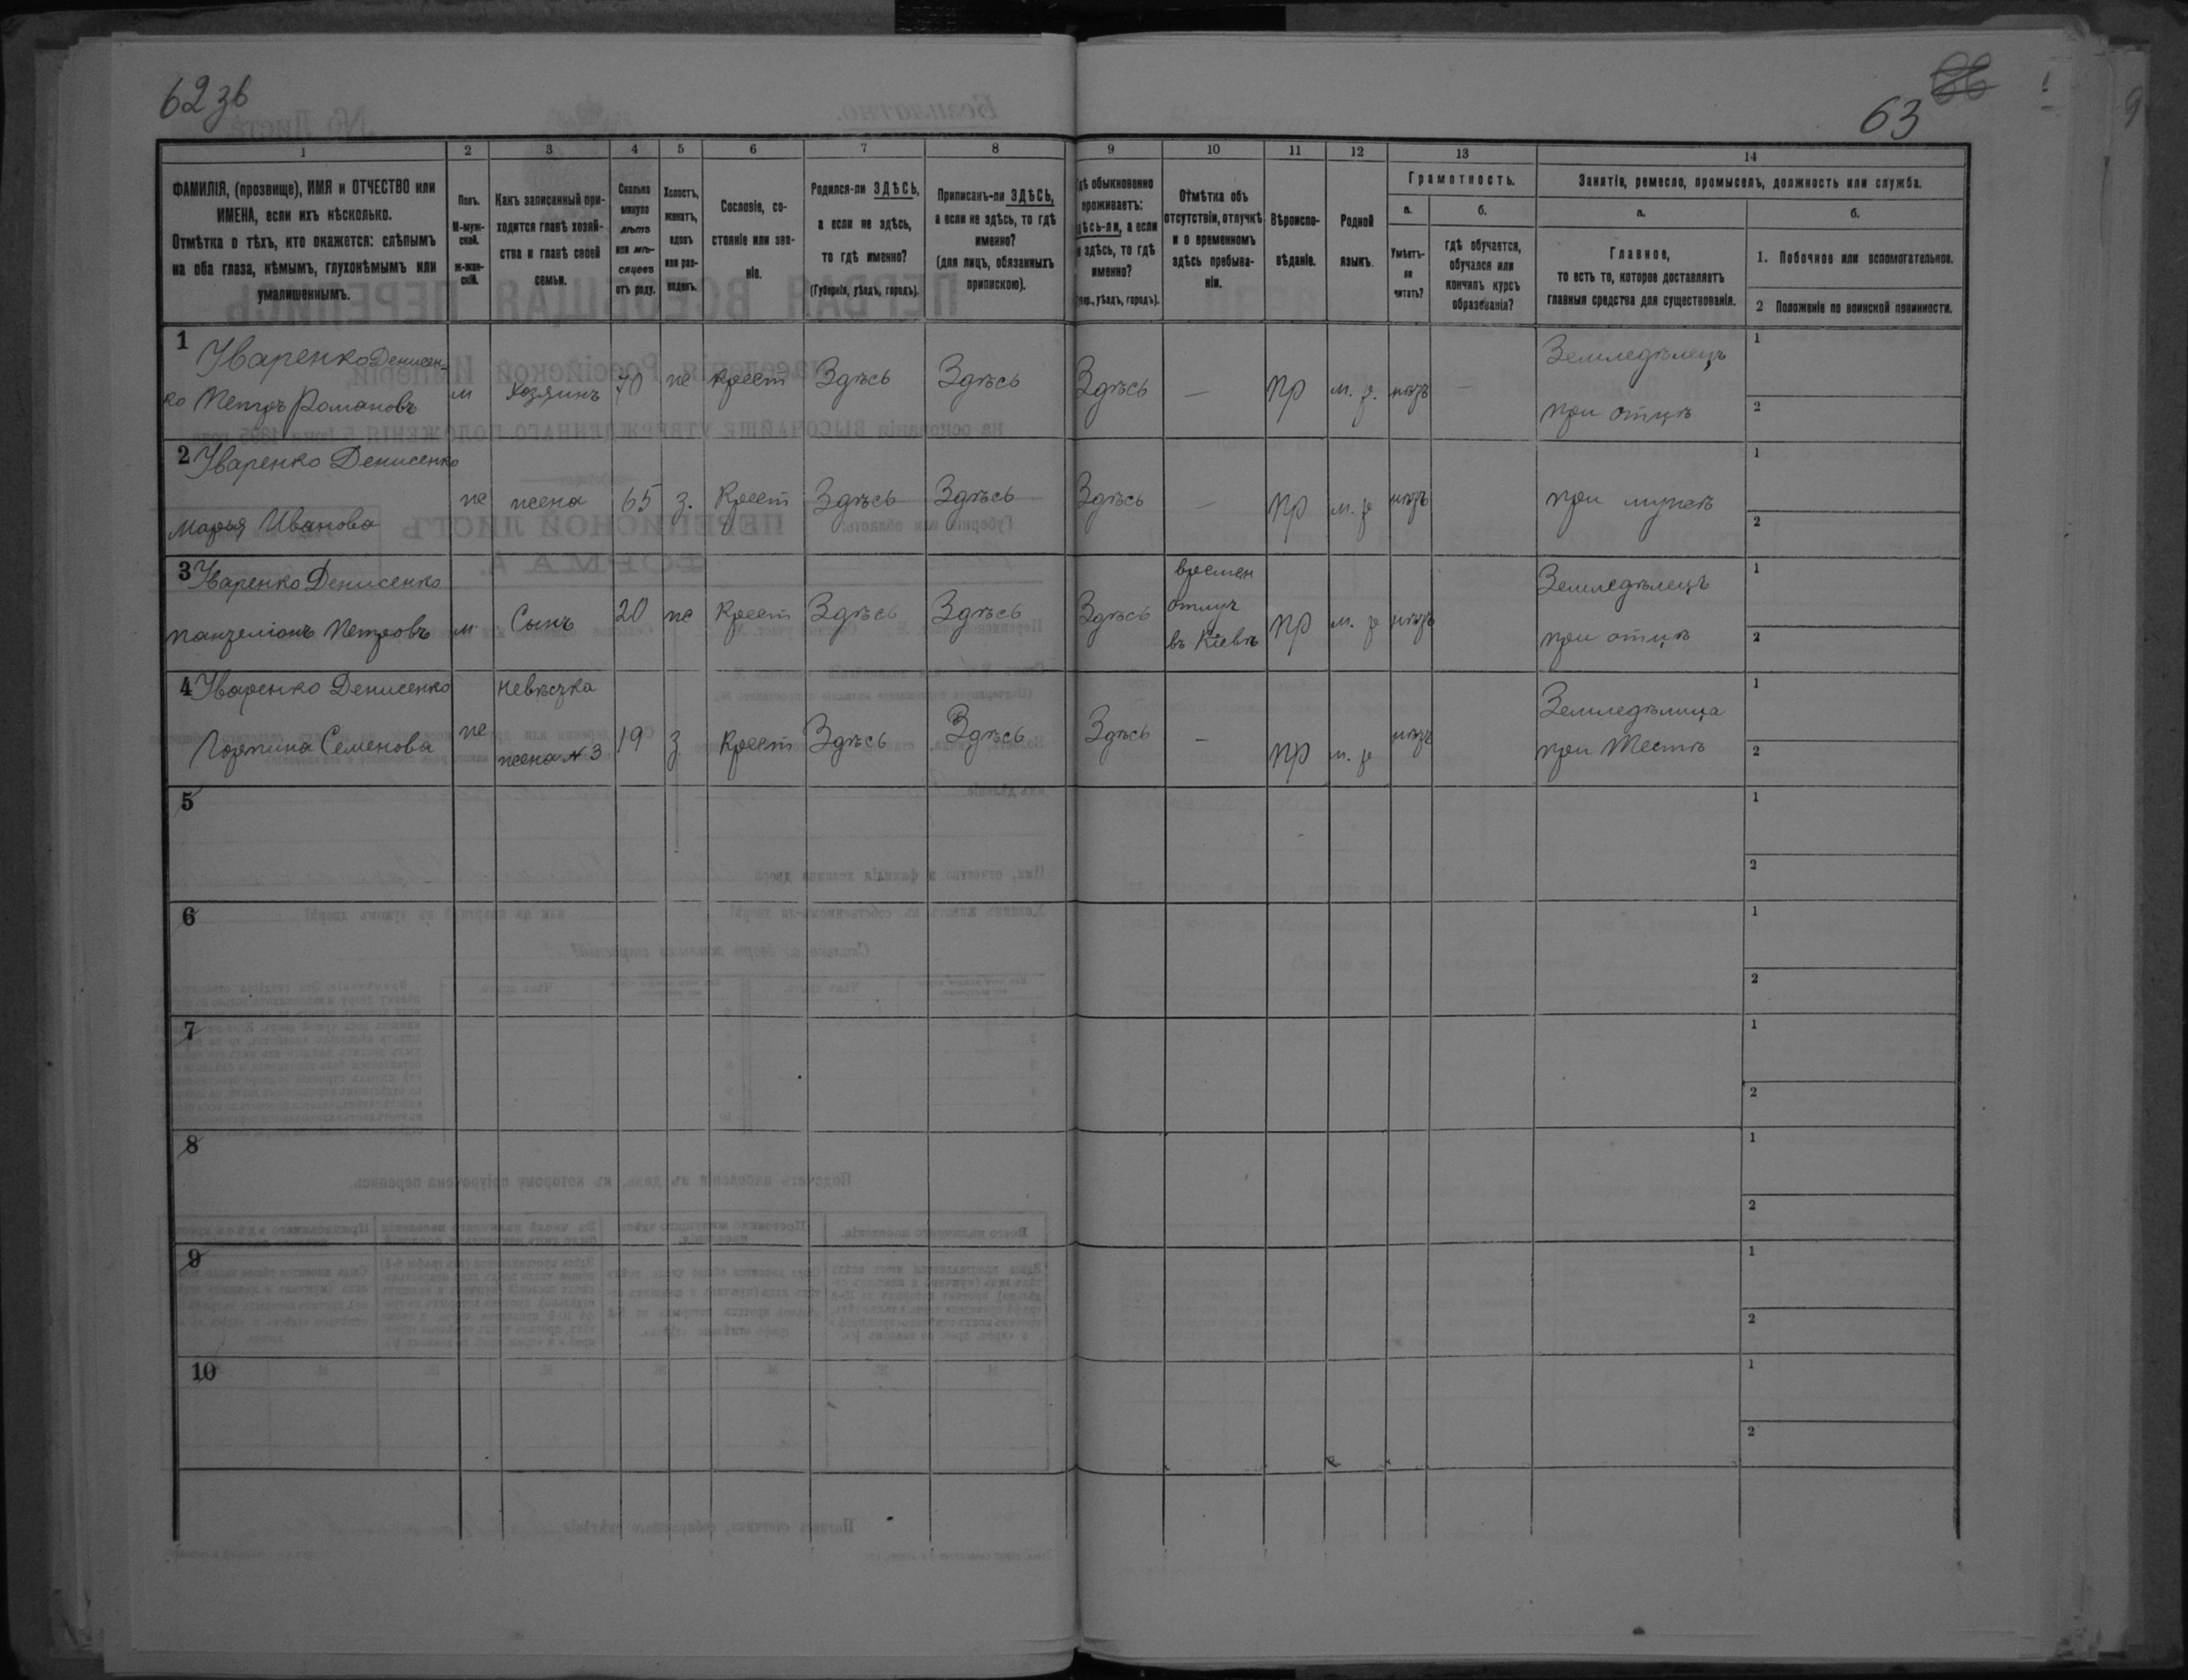 62 зв
63
66
1 2 3 4 5 6 7 8 9 10 11 12 13 14
ФАМИЛІЯ, (прозвище), ИМЯ и ОТЧЕСТВО или
ИМЕНА, если ихъ нѣсколько.
Отмѣтка о тѣхъ, кто окажется: слѣпымъ
на оба глаза, нѣмымъ, глухонѣмымъ или
умалишеннымъ.
Полъ.
М-муж-
ской.
ж-жен-
скій.
Какъ записанный при-
ходится главѣ хозяй-
ства и главѣ своей
семьи.
Сколько
минуло
лѣтъ
или мѣ-
сяцевъ
отъ роду.
Холостъ,
женатъ,
вдовъ
или раз-
веденъ.
Сословіе, со-
стояніе или зва-
ніе.
Родился-ли ЗДѢСЬ,
а если не здѣсь,
то гдѣ именно?
(Губернія, уѣздъ, городъ).
Приписанъ-ли ЗДѢСЬ,
а если не здѣсь, то гдѣ
именно?
(для лицъ, обязанныхъ
припискою).
Гдѣ обыкновенно
проживаетъ:
здѣсь-ли, а если
не здѣсь, то гдѣ
именно?
(Губ., уѣздъ, городъ).
Отмѣтка объ
отсутствіи, отлучкѣ
и о временномъ
здѣсь пребыва-
ніи.
Вѣроиспо-
вѣданіе.
Родной
языкъ.
Грамотность.
а.
Умѣетъ-
ли
читать?
б.
гдѣ обучается,
обучался или
кончилъ курсъ
образованія?
Занятіе, ремесло, промыселъ, должность или служба.
а.
Главное,
то есть то, которое доставляетъ
главныя средства для существованія.
б.
1. Побочное или вспомогательное.
2 Положеніе по воинской повинности.
1 Уваренко Денисен- Земледѣлецъ 1
ко Петръ Романовъ м Хозяинъ 70 же крест Здѣсь Здѣсь Здѣсь — пр м. р. нѣтъ — при отцѣ 2
2 Уваренко Денисенко 1
Марья Иванова же жена 65 з. Крест Здѣсь Здѣсь Здѣсь — пр м. р нѣтъ при мужѣ 2
3 Уваренко Денисенко времен Земледѣлецъ 1
Петровъ м Сынъ 20 же Крест Здѣсь Здѣсь Здѣсь отлуч пр м. р нѣтъ при отцѣ 2
въ Кіевѣ
4 Уваренко Денисенко невѣстка Земледѣлица 1
Горпина Семенова же жена № 3 19 з Крест Здѣсь Здѣсь Здѣсь — пр м. р нѣтъ при Тестѣ 2
5 1
2
6 1
2
7 1
2
8 1
2
9 1
2
10 1
2